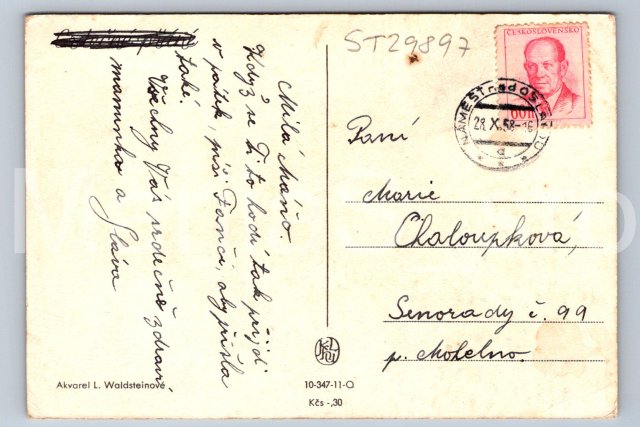 ST29897
ČESKOSLOVENSKO
60 h
NÁMĚŠŤ nad OSLAVOU
28.X.58-16
a
Milá Máňo.
Když se Ti to hodí tak přijď
v pátek, piš Fanči, aby přišla
také.
Všechny Vás srdečně zdraví
maminka a
Sláva
Paní
Marie
Chaloupková,
Senorady č. 99
p. Mohelno.
Akvarel L. Waldsteinové
10-347-11-O
Kčs -,30